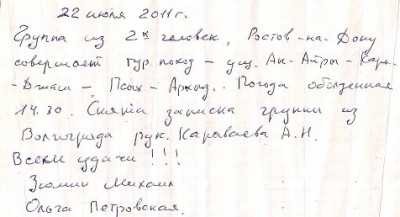 22 июля 2011 г.
Группа из 2х человек, Ростов-на-Дону
совершает тур. поход - ущ. Ак-Айры - Кара-
-Джаш - Псыш - Архыз. Погода облачная
14.30. Снята записка группы из
Волгограда рук. Караваева А.Н.
Всем удачи!!!
Зюмин Михаил
Ольга Петровская.